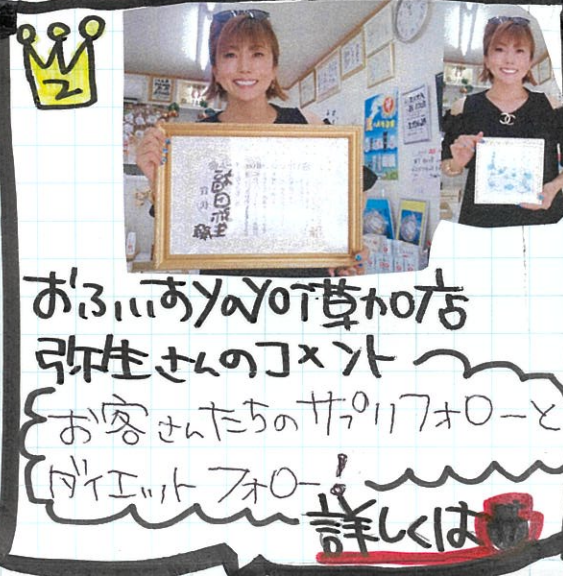 2
おふぃすyayoi草加店
弥生さんのコメント
お客さんたちのサプリフォローと
ダイエットフォロー!
詳しくは